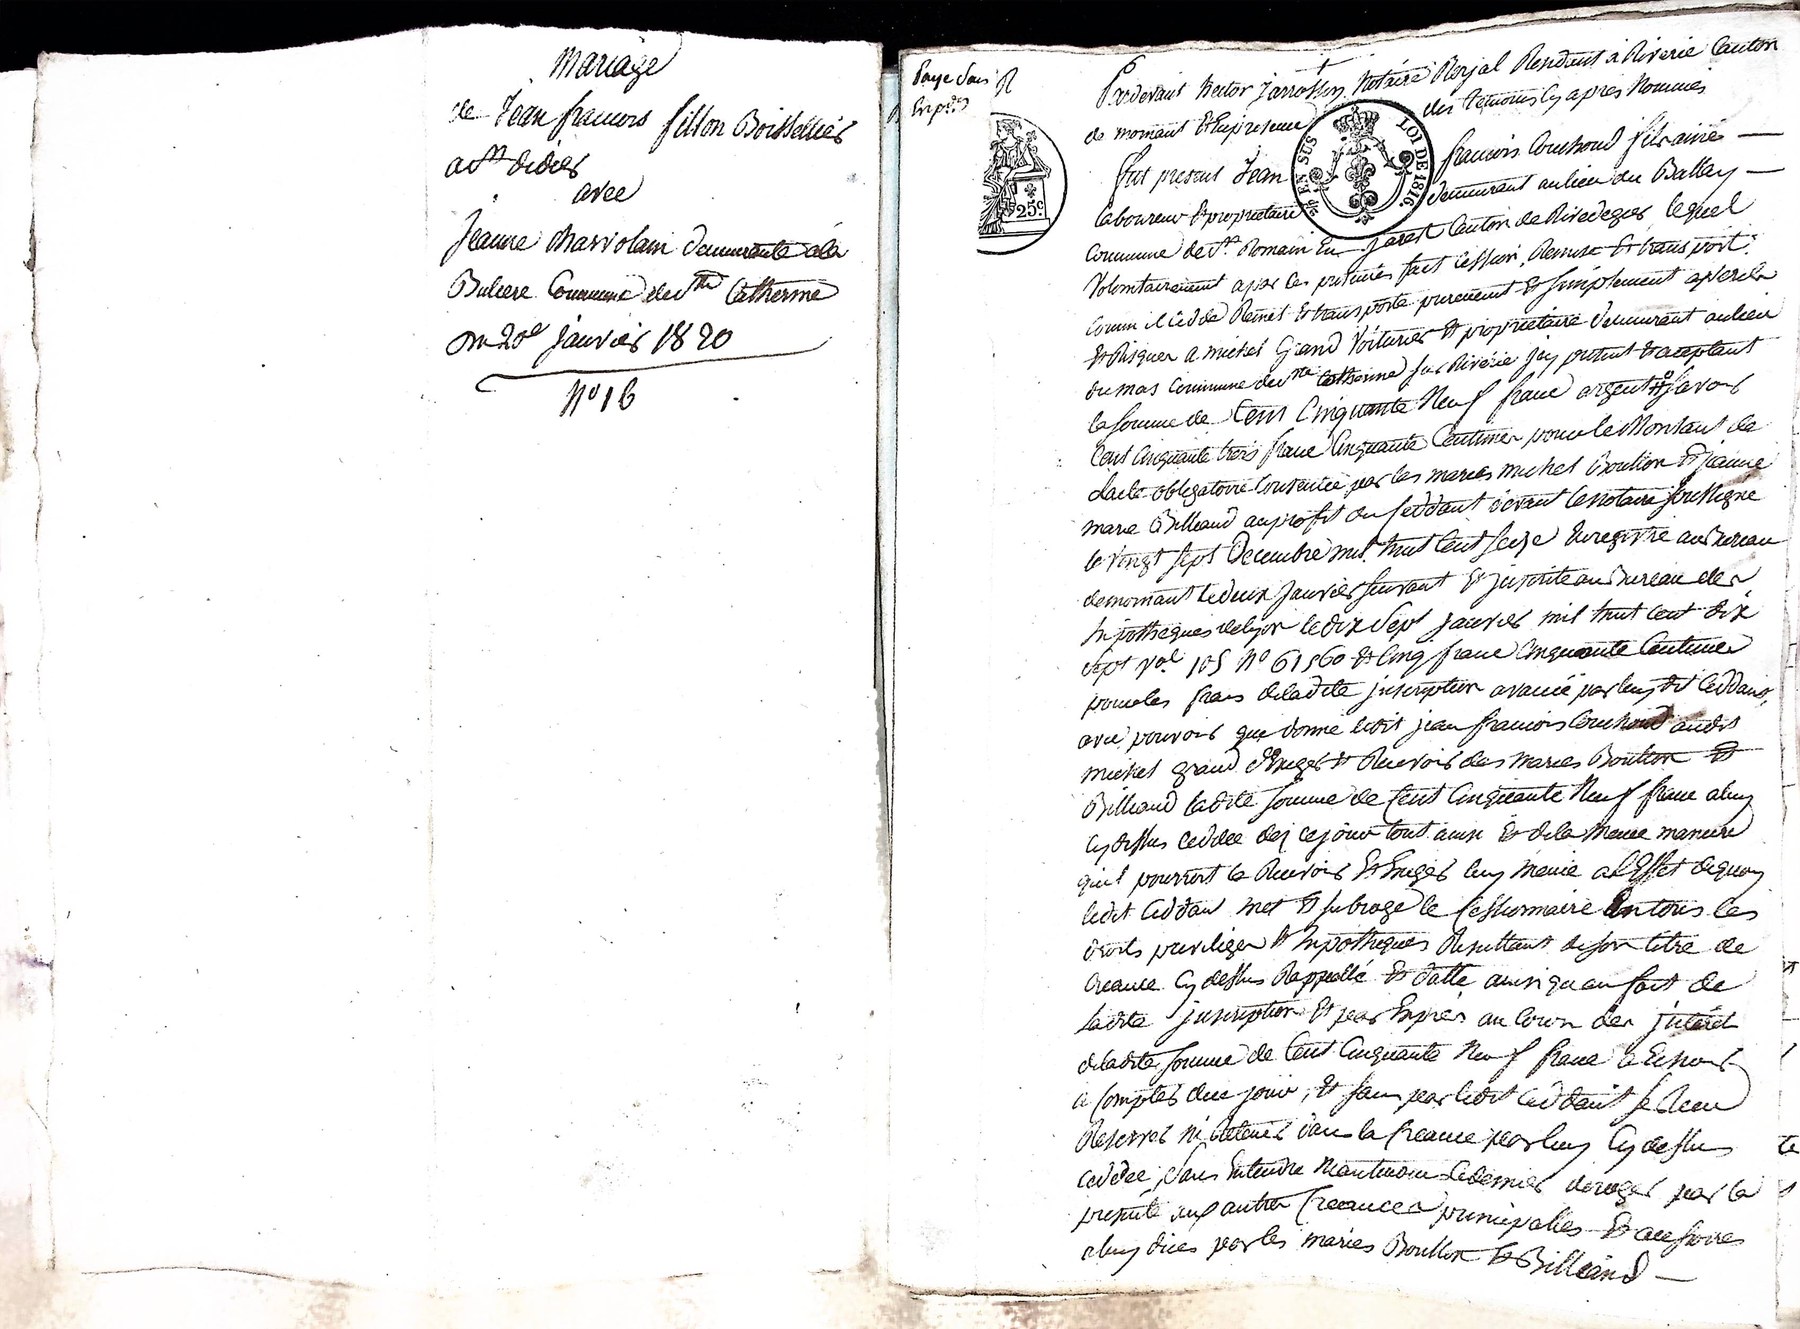 Mariage
de Jean francois fillon Boisselliér
a st didiér
avec
Jeanne charvolain demeurante a la
Buliere Commune de ste Catherine
du 20e janvièr 1820
No 16
Paye Sans
Exp.on
25c
EN SUS
LOI DE 1816
Pardevant hector Jarrossin Notaire Royal Resident a Riverie Canton
de mornant Et En presence des temoins Cy après Nommés
fut present Jean francois Couchoud fils ainé
laboureur & proprietaire demeurant au lieu du Ballay
Commune de st Romain En Jarest Canton de Rivedegier lequel
Volontairement a par ces presentes fait Cession, Remise Et transport
Comm il Cedde Remet Et transporte purement Et simplement a perils
Et Risques a michel Grand Voiturier & proprietaire demeurant au lieu
du mas Commune de ste Catherine sur Riverie jcy present & acceptant
la somme de Cent Cinquante Neuf franc argent savoir
Cent Cinquante trois franc Cinquante Centimes pour le Montant de
l'acte obligatoire Consentie par les mariés michel Boulton & jeanne
marie Billiand au profit du Ceddant devant le notaire soussigné
le vingt sept Decembre mil huit Cent seize Enregistré au Bureau
de mornant le deux Janvier suivant Et jnscrite au Bureau des
hypotheques de lyon le dix Sept janvier mil huit cent dix
sept vol 105 No 61560 & Cinq franc Cinquante Centimes
pour les frais de ladite jnscription avancé par ledit Ceddant,
avec pouvoir que donne ledit jean francois Couchoud audit
michel grand d'Exiger & Recevoir des mariés Boulton &
Billiand ladite somme de Cent Cinquante Neuf franc a luy
Cy dessus Ceddée dez ce jour tout ainsi Et de la meme maniere
qu'il pourroit la Recevoir Et Exiger luy meme a l'Effet de quoy
ledit Ceddant met & subroge le Cessionnaire En tous les
droits privileges & hypotheques Resultant de son titre de
Creance Cy dessus Rappellé Et datté ainsi qu'au fait de
ladite jnscription Et par Exprès au Cours des jnterêt
de ladite somme de Cent Cinquante Neuf franc a Echoir
a Compter de ce jour, & sans par ledit Ceddant se Rien
Reserver ni Retenir dans la Creance par luy Cy dessus
Ceddée, sans Entendre Neantmoins Ce dernier deroger par la
presente aux autres Creances principalles Et accessoires
a luy dues par les mariés Boulton & Billiand